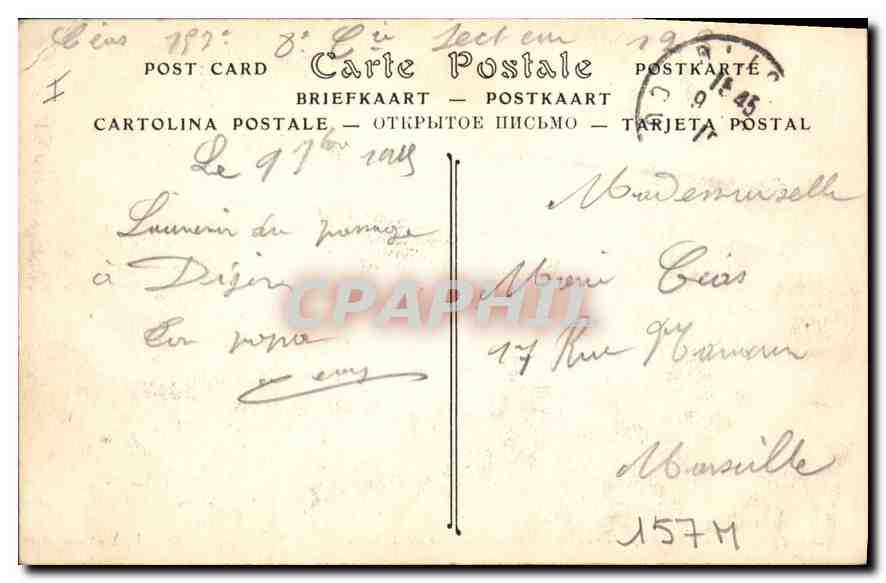 Céas 157e 8e Cie Secteur
POST CARD Carte Postale POSTKARTE
BRIEFKAART — POSTKAART
CARTOLINA POSTALE — ОТКРЫТОЕ ПИСЬМО — TARJETA POSTAL
I
15 45
9
Le 9 7bre 1915
Souvenir du passage
à Dijon
Ton papa
Mademoiselle
Marie Céas
17 Rue
Marseille
157M
CPAPHIL